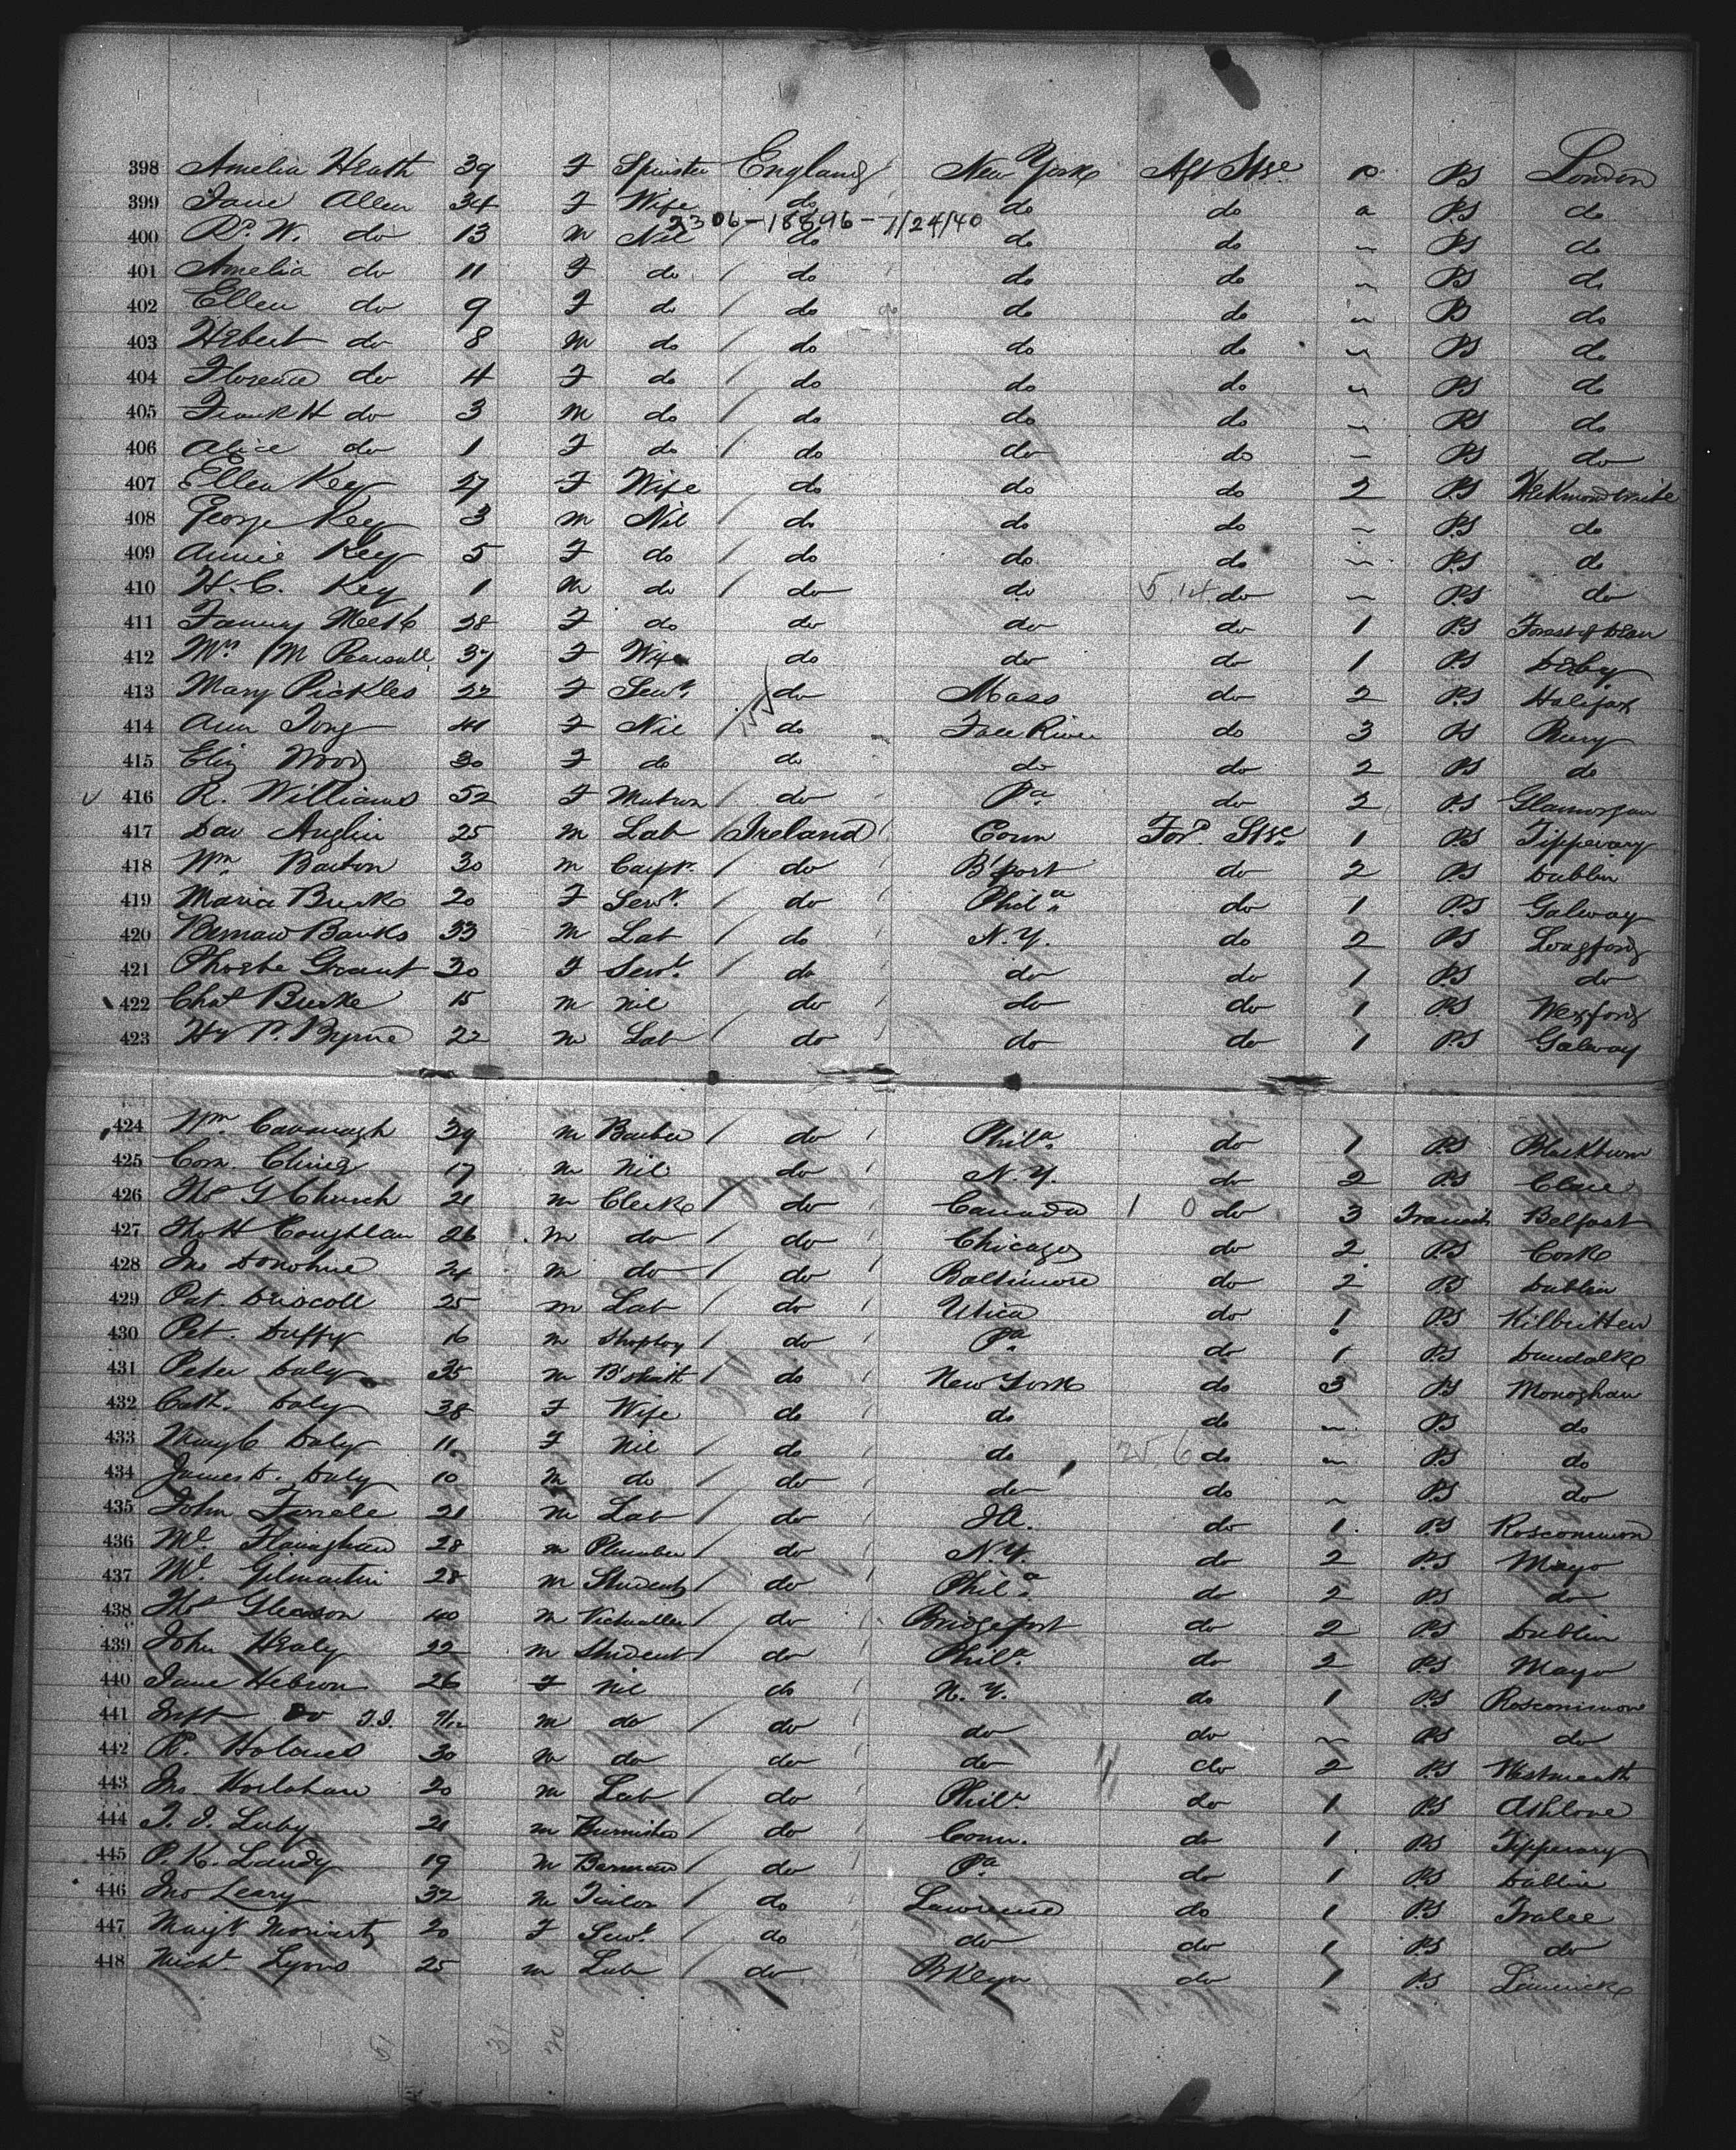 398 Amelia Heath 39 F Spinster England New York Aft Stge PS London
399 Jane Allen 34 F Wife do do do a PS do
2306-18896-7/24/40
400 Rd. W. do 13 M Nil do do do " PS do
401 Amelia do 11 F do / do do do " PS do
402 Ellen do 9 F do / do do do " PS do
403 Hebert do 8 M do / do do do " PS do
404 Florence do 4 F do / do do do " PS do
405 Frank H do 3 M do / do do do " PS do
406 Alice do 1 F do / do do do " PS do
407 Ellen Key 27 F Wife do do do 2 PS Heckmondwike
408 George Key 3 M Nil / do do do " PS do
409 Annie Key 5 F do / do do do " PS do
410 H. C. Key 1 M do / do do 5.14. do " PS do
411 Fanny Meek 28 F do do do do 1 PS Forest of Dean
412 Mrs M Pearsall 37 F Wife do do do 1 PS Derby
413 Mary Pickles 22 F Servt. do Mass do 2 PS Halifax
414 Ann Tong 41 F Nil / do Fall River do 3 PS Bury
415 Eliz Wood 30 F do do do do 2 PS do
416 R. Williams 52 F Matron / do Pa. do 2 PS Glamorgan
417 Dav Anglin 25 M Lab / Ireland Conn Ford. Stge 1 PS Tipperary
418 Wm. Barton 30 M Carpr. / do B'port do 2 PS Dublin
419 Maria Burke 20 F Servt. / do Phila. do 1 PS Galway
420 Bernard Banks 33 M Lab / do N.Y. do 2 PS Longford
421 Phoebe Grant 30 F Servt. / do do do 1 PS do
422 Chas Burke 15 M Nil do do do 1 PS Wexford
423 Hy P. Byrne 22 M Lab / do do do 1 PS Galway
424 Wm. Cavanagh 39 M Barber / do Phila. do 1 PS Blackburn
425 Corn. Cline 17 M Nil do N.Y. do 2 PS Clare
426 Thos G Church 21 M Clerk / do Canada do 3 Transit Belfast
427 Thos H Coughlan 26 M do / do Chicago do 2 PS Cork
428 Jno Donohue 24 M do / do Baltimore do 2 PS Dublin
429 Pat. Driscoll 25 M Lab / do Utica do 1 PS Kilbritten
430 Pat. Duffy 16 M Shopboy / do Pa. do 1 PS Dundalk
431 Peter Daly 35 M B'smith / do New York do 3 PS Monoghan
432 Cath. Daly 38 F Wife do do do " PS do
433 Mary C Daly 11 F Nil / do do 25.6 do " PS do
434 James D. Daly 10 M do / do do do " PS do
435 John Farrell 21 M Lab / do do 1 PS Roscommon
436 Ml. Flanaghan 28 M Plumber / do N.Y. do 2 PS Mayo
437 Ml. Gilmartin 28 M Student / do Phila. do 2 PS do
438 Thos Gleason 40 M Victualler / do Bridgeport do 2 PS Dublin
439 John Healy 22 M Student / do Phila. do 2 PS Mayo
440 Jane Hebron 26 F Nil do N.Y. do 1 PS Roscommon
441 Inft do M do / do do do " PS do
442 R. Holmes 30 M do do do do 2 PS Westmeath
443 Jno. Horlahan 20 M Lab / do Phila. do 1 PS Athlone
444 T. J. Luby 21 M Furnisher / do Conn. do 1 PS Tipperary
445 P. K. Landy 19 M Barman / do Pa do 1 PS Dublin
446 Jno Leary 32 M Tailor / do Lawrence do 1 PS Tralee
447 Margt. Moriarty 20 F Servt. do do do 1 PS do
448 Michl. Lyons 25 M Lab / do Bklyn do 1 PS Limerick